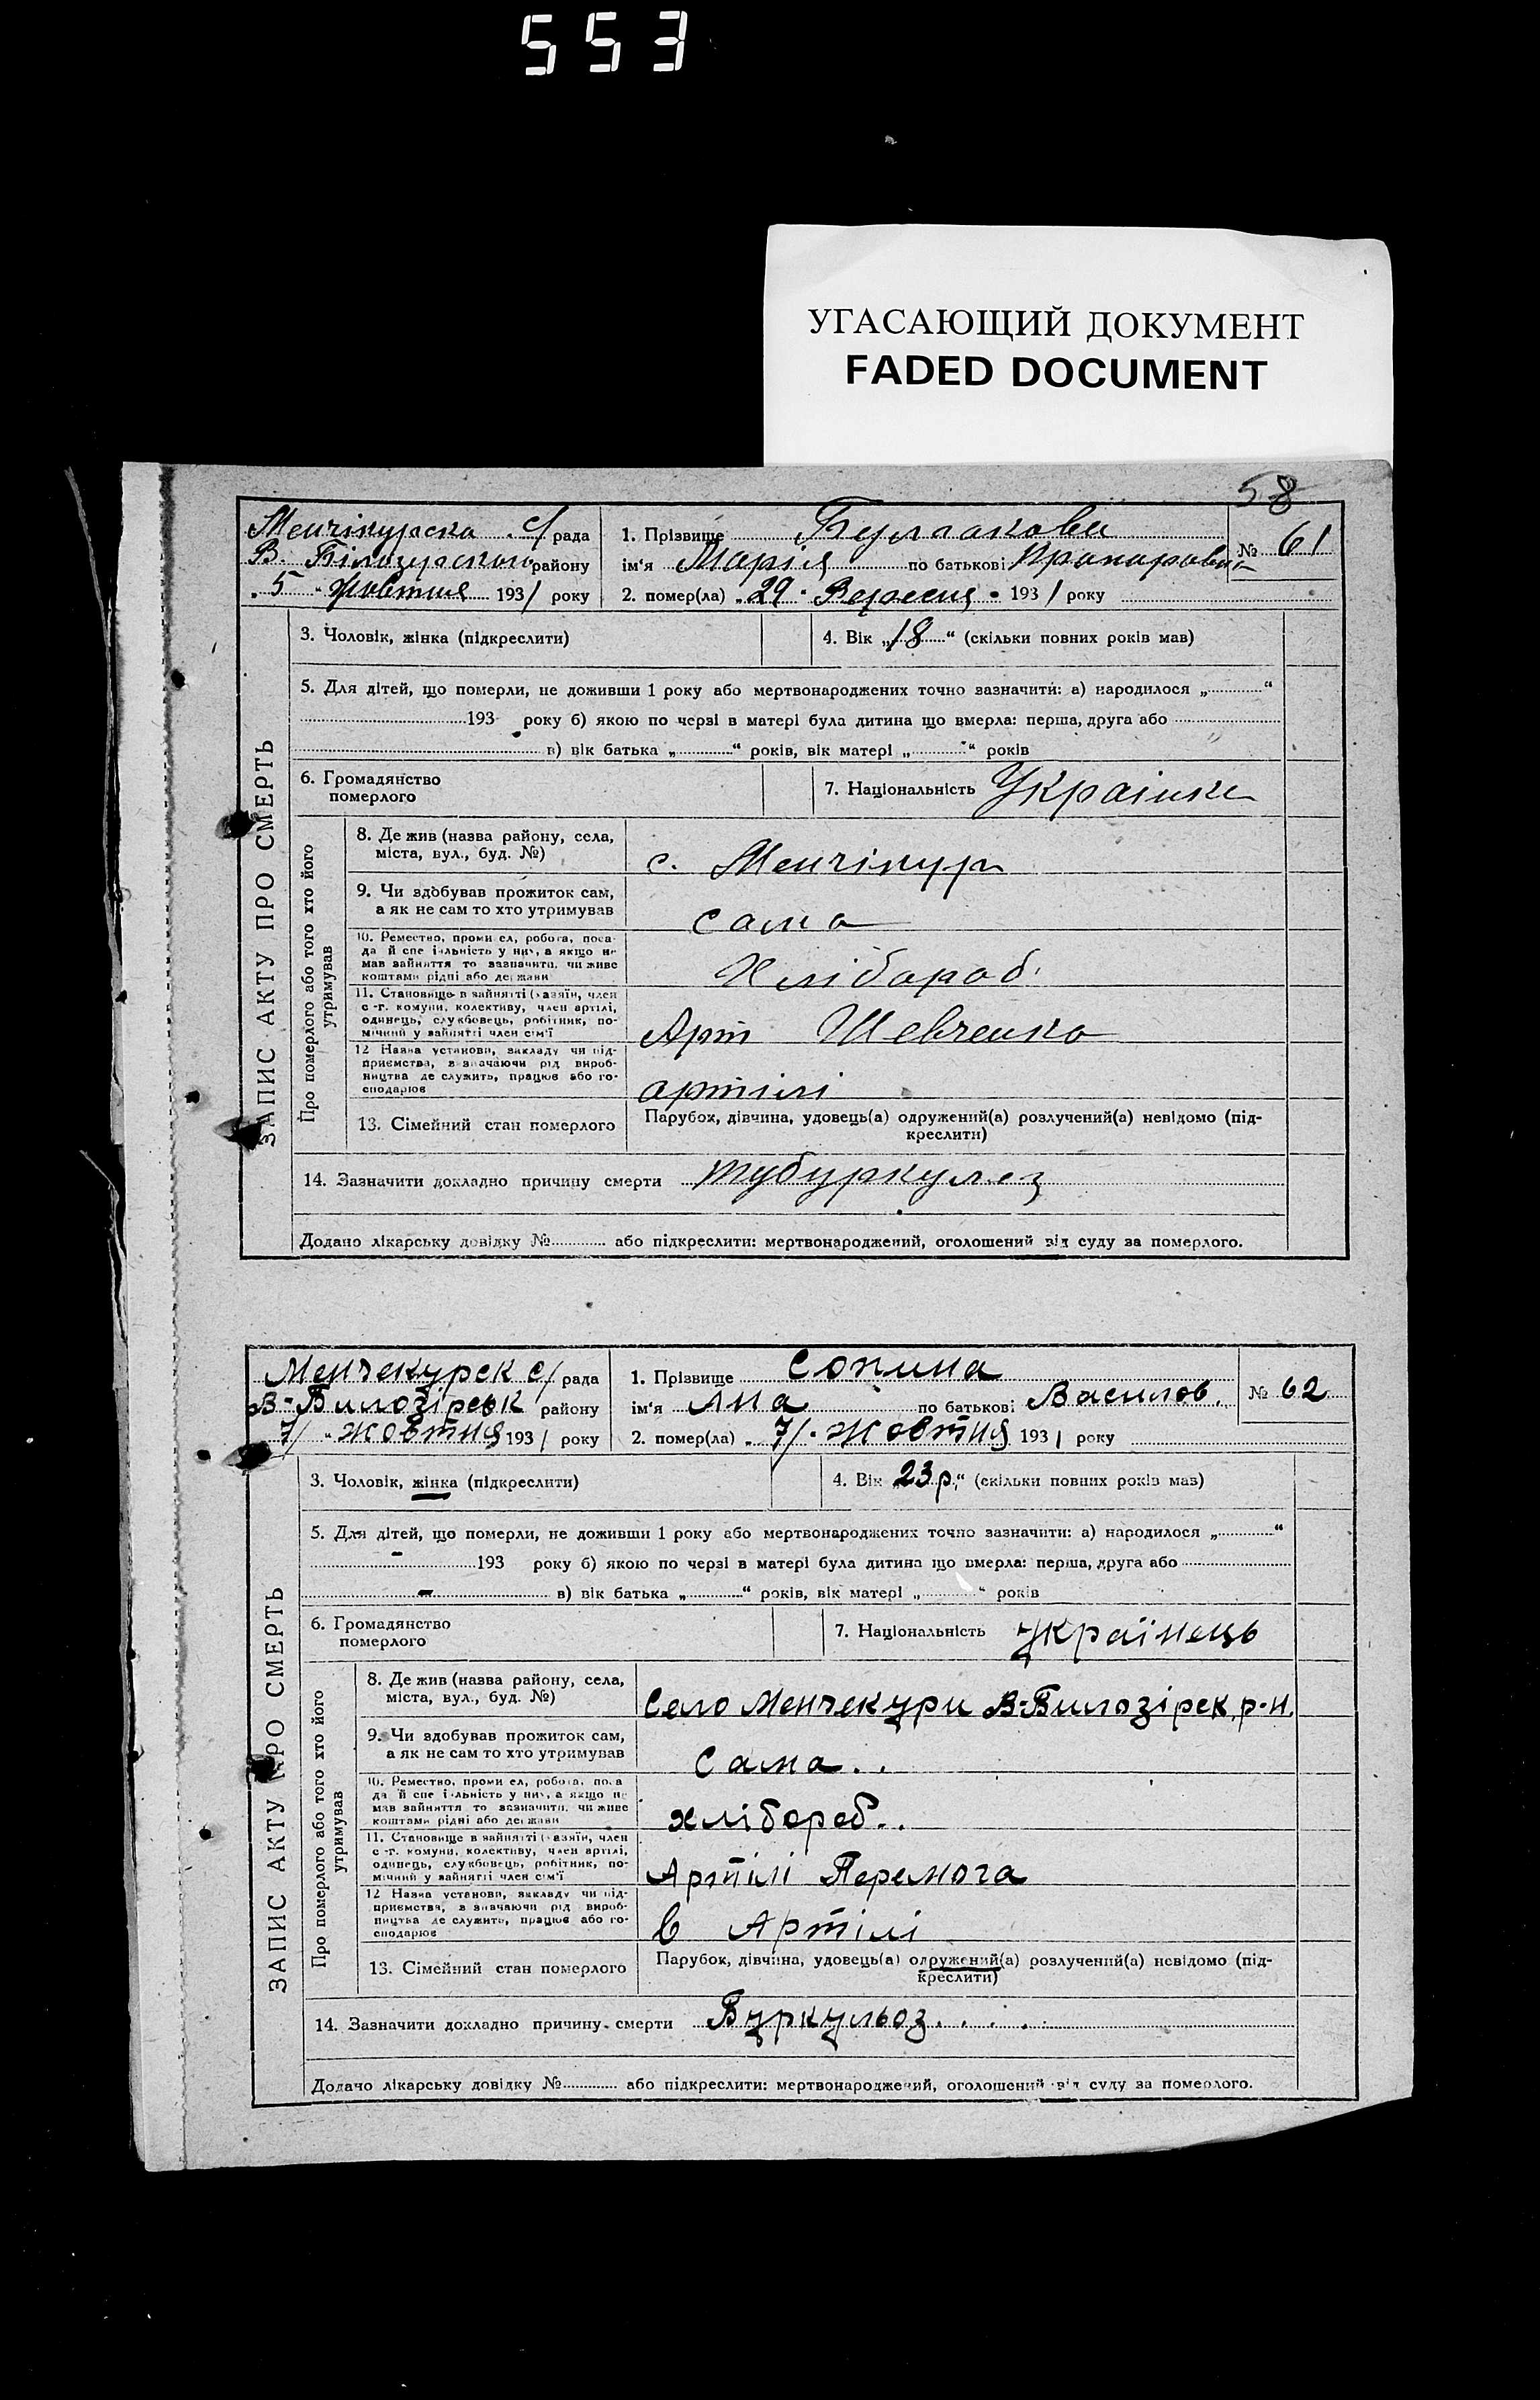 553
УГАСАЮЩИЙ ДОКУМЕНТ
FADED DOCUMENT
58
ЗАПИС АКТУ ПРО СМЕРТЬ
Менчікурска с/рада
В. Білозурського району
„5“ Жовтня 1931 року
1. Прізвище
ім‘я Марія по батькові
№ 61
2. помер(ла) „29“ Вересня 1931 року
3. Чоловік, жінка (підкреслити)
4. Вік „18“ (скільки повних років мав)
5. Для дітей, що померли, не доживши 1 року або мертвонароджених точно зазначити: а) народилося „ “
193 року б) якою по черзі в матері була дитина що вмерла: перша, друга або
в) вік батька „ “ років, вік матері „ “ років
6. Громадянство
померлого
7. Національність Українка
Про померлого або того хто його
утримував
8. Де жив (назва району, села,
міста, вул., буд. №)
с. Менчікур
9. Чи здобував прожиток сам,
а як не сам то хто утримував
сама
10. Ремество, проми ел, робота, поса-
да й спе і›льність у них, а якщо не
мав зайняття то зазначити, чи живе
коштами рідні або держави
Хлібороб
11. Становище в зайнятті (хазяїн, член
с.-г. комуни, колективу, член артілі,
одинець, службовець, робітник, по-
мічний у зайнятті член сім‘ї
Арт Шевченко
12 Назва установи, закладу чи під-
приємства, зазначаючи рід вироб-
ництва де служить, працює або го-
сподарює
артілі
13. Сімейний стан померлого
Парубок, дівчина, удовець(а) одружений(а) розлучений(а) невідомо (під-
креслити)
14. Зазначити докладно причину смерти тубуркулез
Додано лікарську довідку № або підкреслити: мертвонароджений, оголошений від суду за померлого.
ЗАПИС АКТУ ПРО СМЕРТЬ
Менчекурск с/рада
В-Билозірськ району
7/ “ жовтня 1931 року
1. Прізвище Сопина
ім‘я Яна по батькові Василов.
№ 62
2. помер(ла) „7/“ жовтня 1931 року
3. Чоловік, жінка (підкреслити)
4. Вік „23р.“ (скільки повних років мав)
5. Для дітей, що померли, не доживши 1 року або мертвонароджених точно зазначити: а) народилося „ “
193 року б) якою по черзі в матері була дитина що вмерла: перша, друга або
в) вік батька „ “ років, вік матері „ “ років
6. Громадянство
померлого
7. Національність українець
Про померлого або того хто його
утримував
8. Де жив (назва району, села,
міста, вул., буд. №)
Село Менчекури В-Билозірск, р-н.
9. Чи здобував прожиток сам,
а як не сам то хто утримував
Сама..
10. Ремество, проми ел, робота, поса
да й спе і‹льність у них, а якщо не
мав зайняття то зазначити, чи живе
коштами рідні або держави
хлібороб..
11. Становище в зайнятті (хазяїн, член
с.-г. комуни, колективу, член артілі,
одинець, службовець, робітник, по-
мічний у зайнятті член сім‘ї
Артілі Перемога
12 Назва установи, закладу чи під-
приємства, зазначаючи рід вироб-
ництва де служить, працює або го-
сподарює
в Артілі
13. Сімейний стан померлого
Парубок, дівчина, удовець(а) одружений(а) розлучений(а) невідомо (під-
креслити)
14. Зазначити докладно причину смерти Буркульоз....
Додано лікарську довідку № або підкреслити: мертвонароджений, оголошений від суду за померлого.